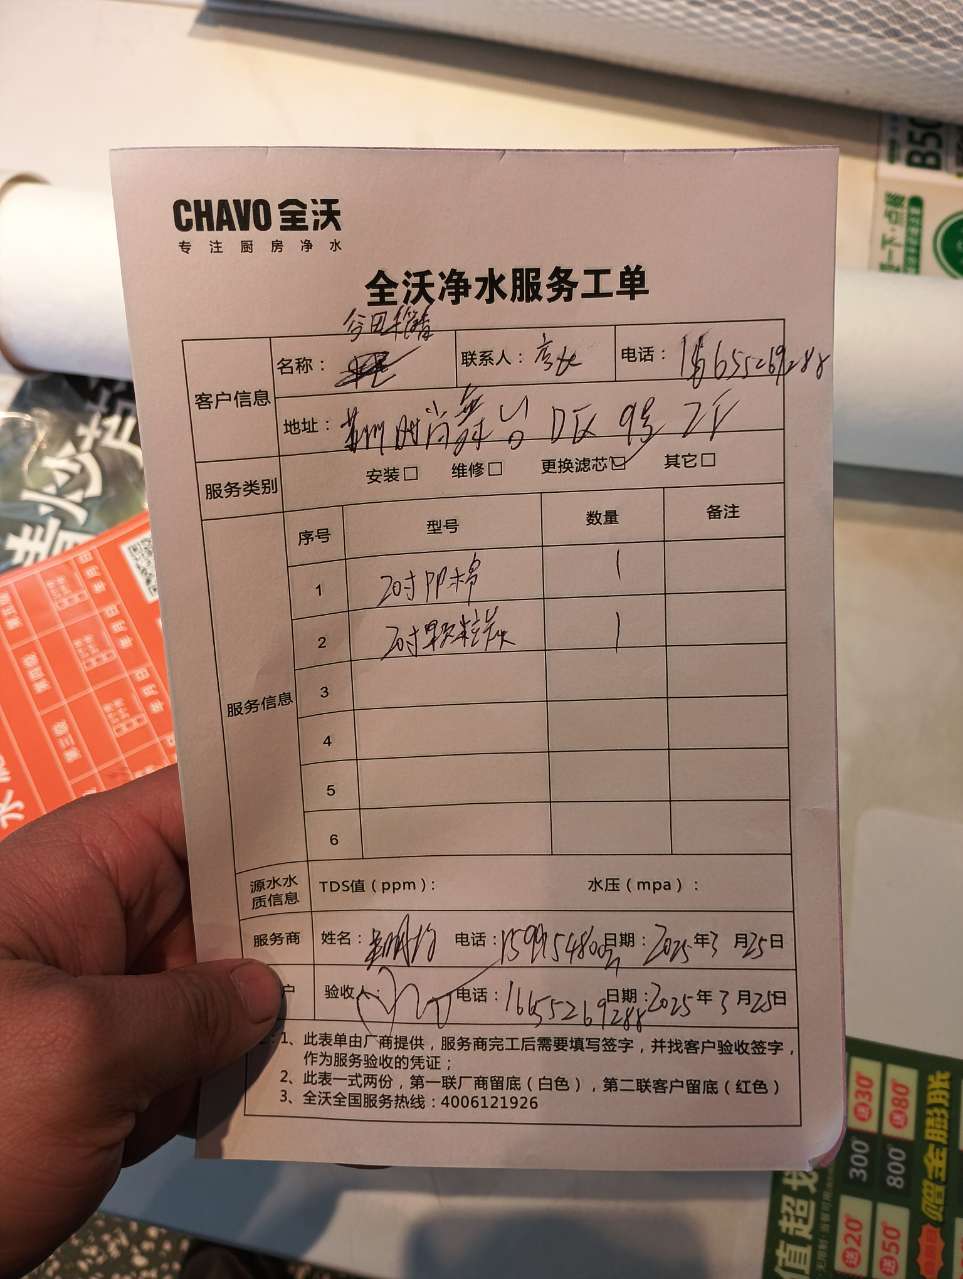 CHAVO 全沃
专注厨房净水
全沃净水服务工单
客户信息
名称：
联系人：店长
电话：16655269288
地址：时尚舞台D区9号2F
服务类别
安装□ 维修□ 更换滤芯☑ 其它□
服务信息
序号 型号 数量 备注
1 20寸PP棉 1
2 20寸颗粒炭 1
3
4
5
6
源水水质信息
TDS值（ppm）： 水压（mpa）：
服务商 姓名： 电话： 日期：2025年3月25日
户 验收人： 电话：16655269288 日期：2025年3月25日
1、此表单由厂商提供，服务商完工后需要填写签字，并找客户验收签字，
作为服务验收的凭证；
2、此表一式两份，第一联厂商留底（白色），第二联客户留底（红色）
3、全沃全国服务热线：4006121926
B50
点餐
第三级
第四级
年 月 日
值超
送30
送80
300
800
送20
送50
赠金膨胀